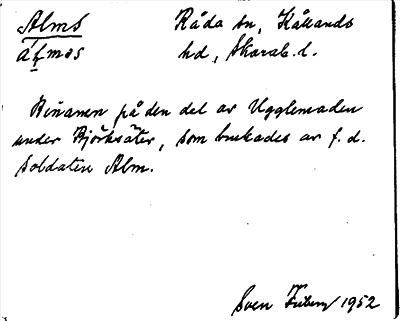 Alms Råda sn, Kållands
ál̥mas hd, Skarab. l.
Binamn på den del av Ugglemaden
under Björksäter, som brukades av f. d.
soldaten Alm.
Sven Friberg 1952